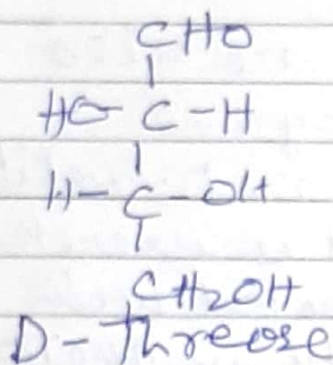 CHO
HO-C-H
H-C-OH
CH2OH
D-threose